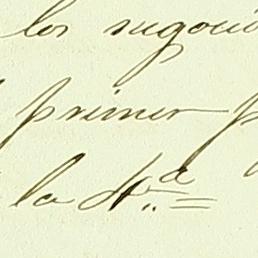 los negoci
primer p
la H.ª